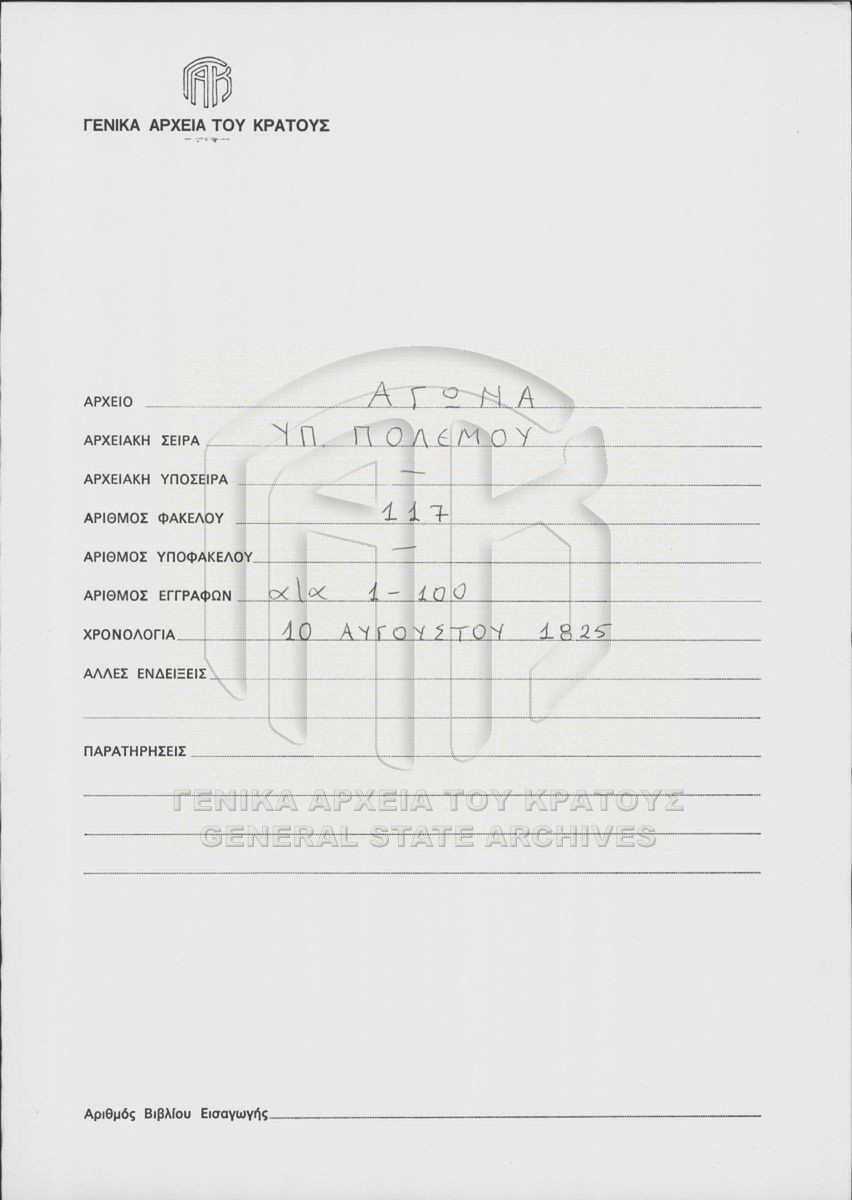 ΓΑΚ
ΓΕΝΙΚΑ ΑΡΧΕΙΑ ΤΟΥ ΚΡΑΤΟΥΣ
ΑΡΧΕΙΟ ΑΓΩΝΑ
ΑΡΧΕΙΑΚΗ ΣΕΙΡΑ ΥΠ. ΠΟΛΕΜΟΥ
ΑΡΧΕΙΑΚΗ ΥΠΟΣΕΙΡΑ —
ΑΡΙΘΜΟΣ ΦΑΚΕΛΟΥ 117
ΑΡΙΘΜΟΣ ΥΠΟΦΑΚΕΛΟΥ —
ΑΡΙΘΜΟΣ ΕΓΓΡΑΦΩΝ α/α 1-100
ΧΡΟΝΟΛΟΓΙΑ 10 ΑΥΓΟΥΣΤΟΥ 1825
ΑΛΛΕΣ ΕΝΔΕΙΞΕΙΣ
ΠΑΡΑΤΗΡΗΣΕΙΣ
ΓΕΝΙΚΑ ΑΡΧΕΙΑ ΤΟΥ ΚΡΑΤΟΥΣ
GENERAL STATE ARCHIVES
Αριθμός Βιβλίου Εισαγωγής